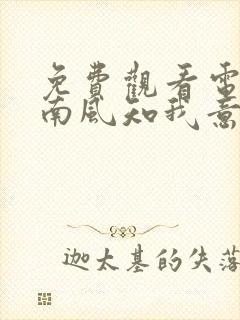 免費觀看電
南風知我意
迦太基的失落